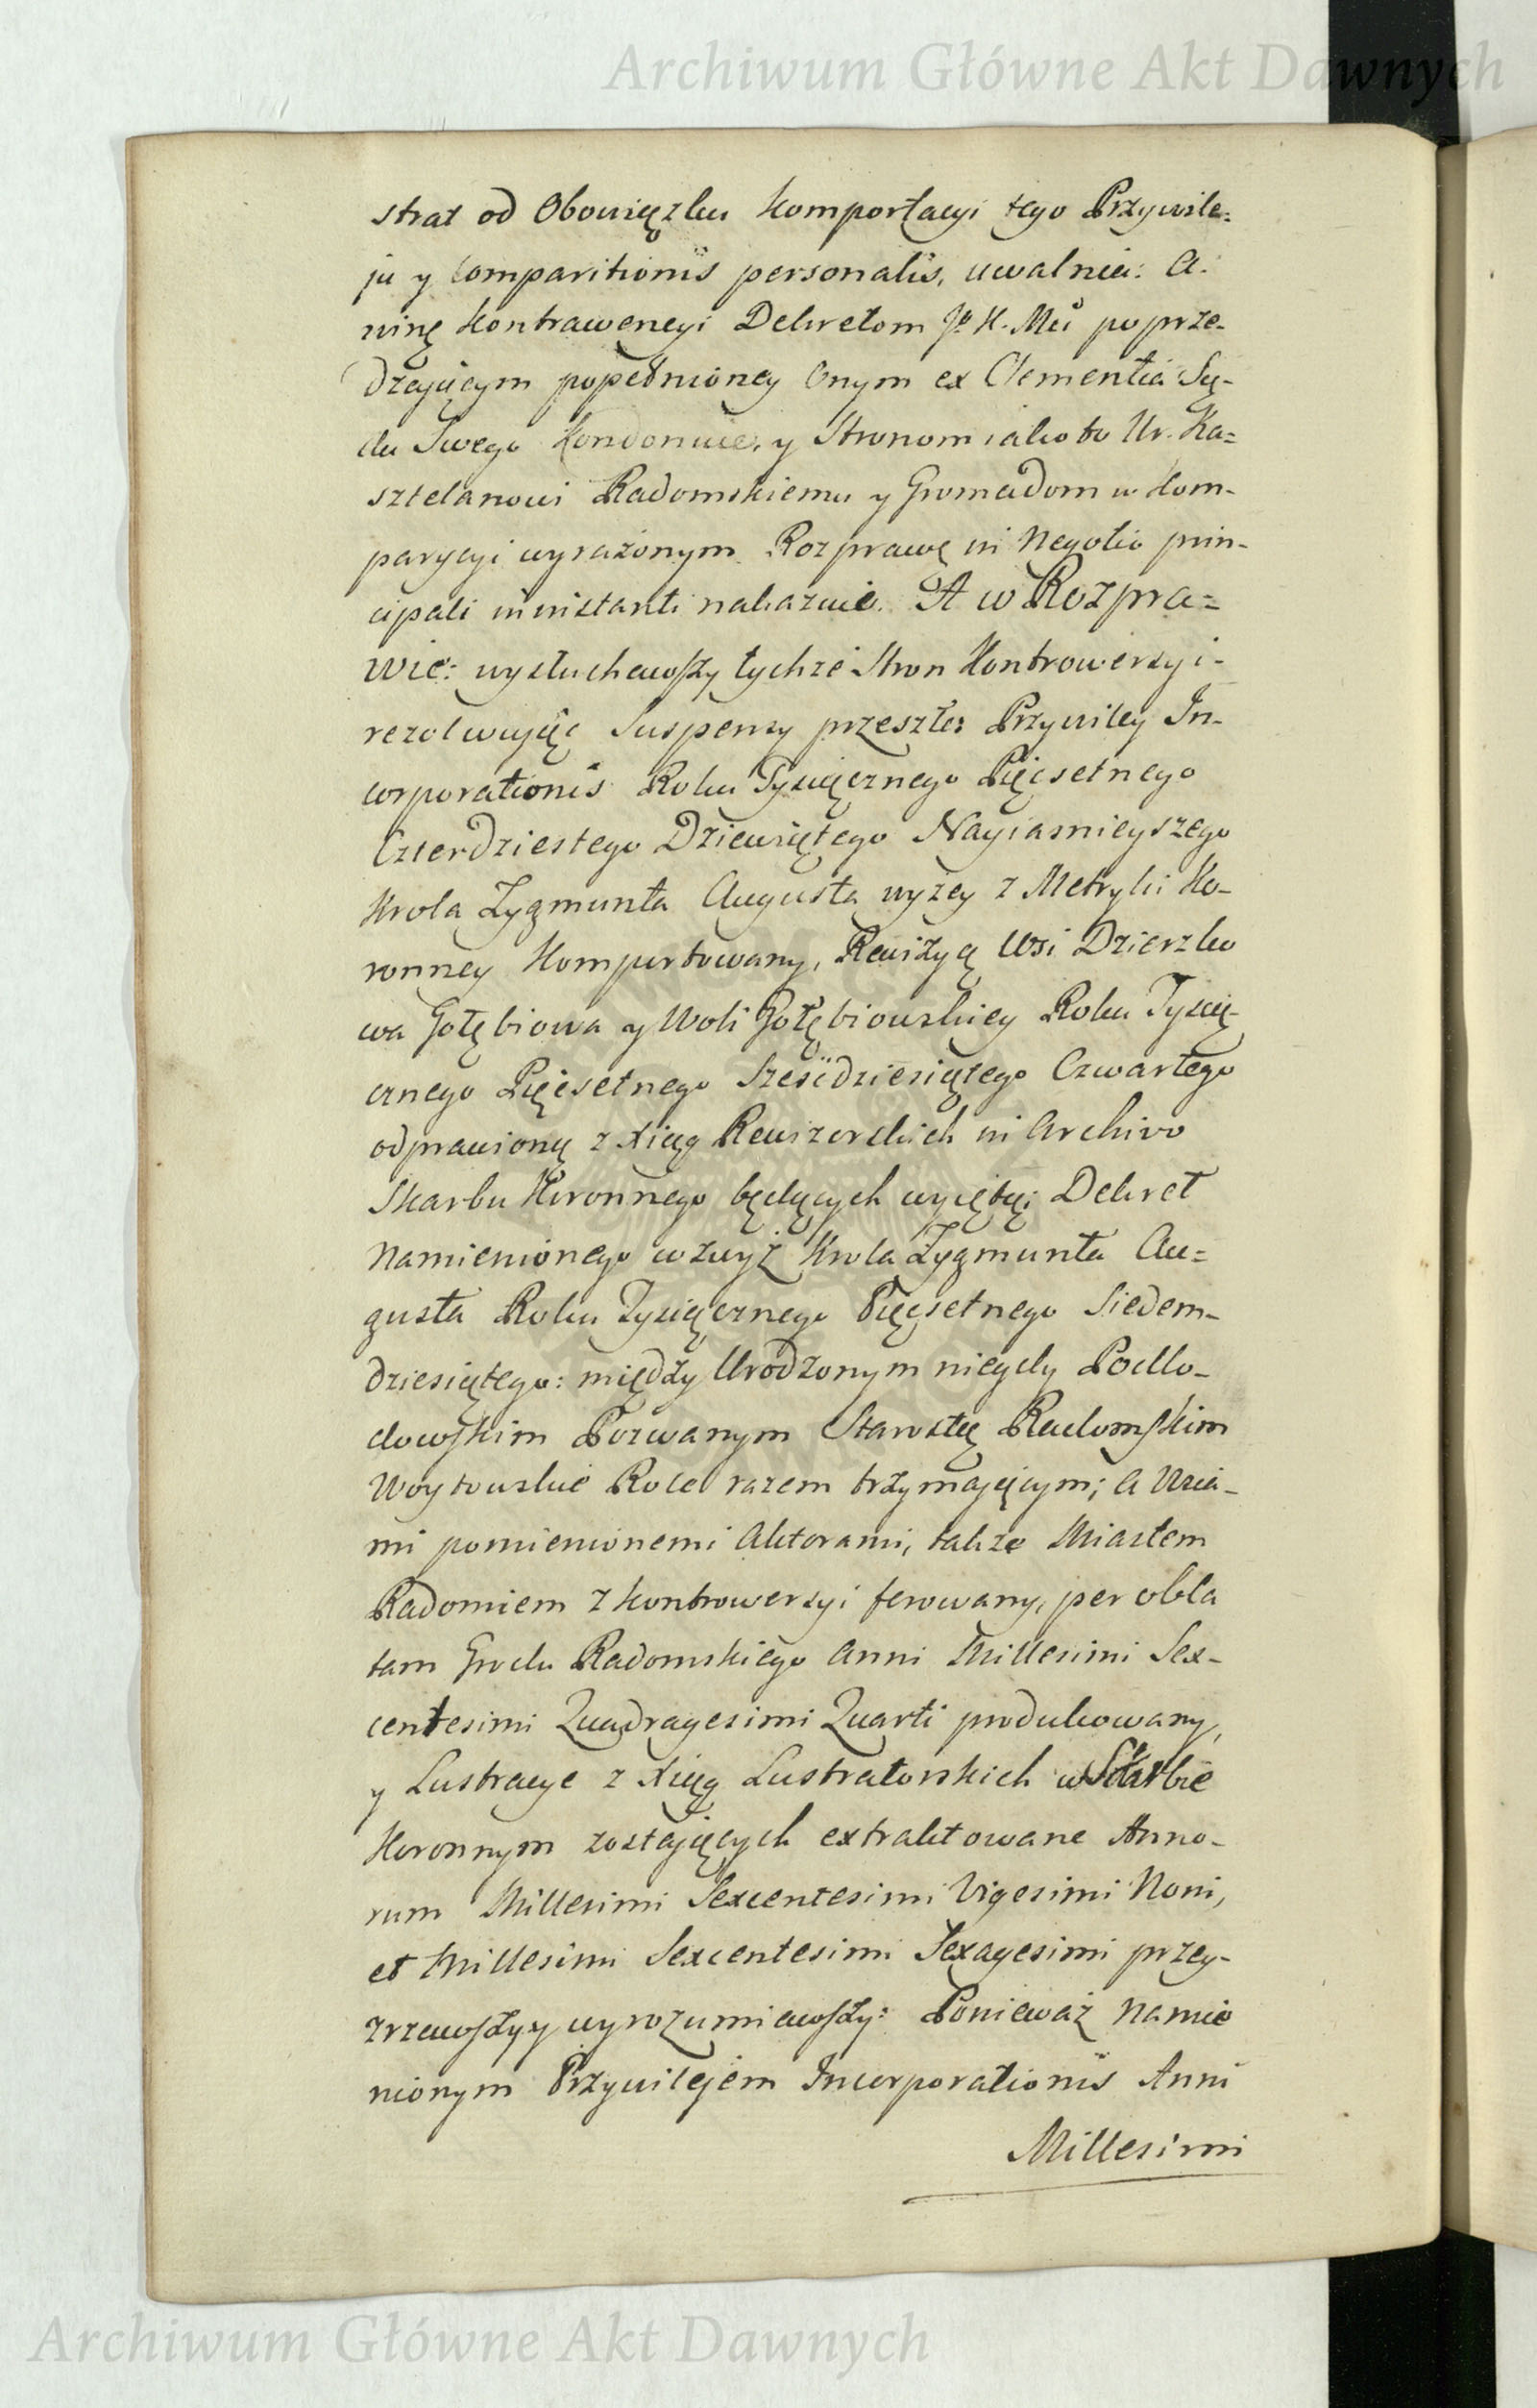 Archiwum Główne Akt Dawnych
strat od Obowiązku komportacyi tego Przywile=
ju y comparitionis personalis, uwalnia: A.
winę kontrawencyi Dekretom Jo K. Mci poprze-
dzaiącym popełnioney Onym ex Clementia Są-
du Swego kondonuie, y Stronom iako to Ur. Ka=
sztelanowi Radomskiemu y Gromadom w kom-
parycyi wyrażonym Rozprawę in Negotio prin-
cipali in instanti nakazuie. A w Rozpra=
wie: wysłuchawszy tychże Stron Kontrowersyi-
rezolwuiąc Suspensy przeszłe: Przywiley In-
corporationis Roku Tysiącznego Pięćsetnego
Czterdziestego Dziewiątego Nayiasnieyszego
Krola Zygmunta Augusta wyżey z Metryki Ko-
ronney komportowany, Rewizyą Wsi Dzierzko
wa Gołębiowa y Woli Gołębiowskiey Roku Tysią-
cznego Pięćsetnego Sześćdziesiątego Czwartego
odprawioną z Xiąg Rewizorskich in Archivo
Skarbu Koronnego będących wyiętą; Dekret
namienionego wzwyż Krola Zygmunta Au=
gusta Roku Tysiącznego Pięćsetnego Siedem-
dziesiątego: między Urodzonym niegdy Podlo-
dowskim Pozwanym Starostą Radomskim
Woytowskie Role razem trzymaiącym; a Wsia-
mi pomienionemi Aktorami, także Miastem
Radomiem z kontrowersyi ferowany, per obla
tam Grodu Radomskiego Anni Millesimi Sex-
centesimi Quadragesimi Quarti produkowany,
y Lustracye z Xiąg Lustratorskich w Skarbie
Koronnym zostaiących extraktowane Anno-
rum Millesimi Sexcentesimi Vigesimi Noni,
et Millesimi Sexcentesimi Sexagesimi przey-
zrzawszy y wyrozumiawszy: Ponieważ namie
nionym Przywilejem Incorporationis Anni
Millesimi
Archiwum Główne Akt Dawnych